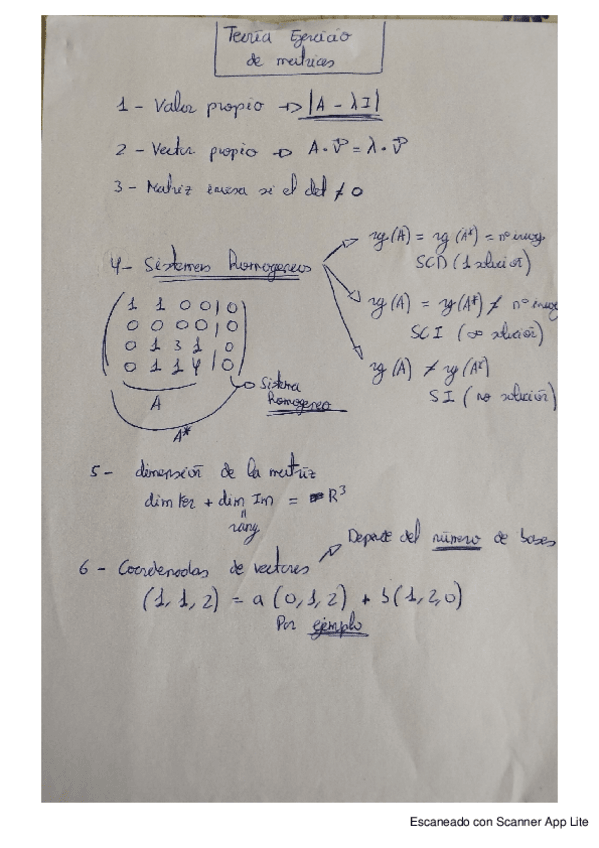 Teoría Ejercicio
de matrices
1 - Valor propio → |A - λI|
2 - Vector propio → A · v⃗ = λ · v⃗
3 - Matriz inversa si el det ≠ 0
4 - Sistemas Homogéneos
rg(A) = rg(A*) = nº incog
SCD (1 solución)
rg(A) = rg(A*) ≠ nº incog
SCI (∞ solución)
rg(A) ≠ rg(A*)
SI (no solución)
1 1 0 0 | 0
0 0 0 0 | 0
0 1 3 1 | 0
0 1 1 4 | 0
A
A*
Sistema
Homogéneo
5 - dimensión de la matriz
dim Ker + dim Im = R³
"
rang
6 - Coordenadas de vectores
Depende del número de bases
(1, 1, 2) = a (0, 1, 2) + b (1, 2, 0)
Por ejemplo
Escaneado con Scanner App Lite